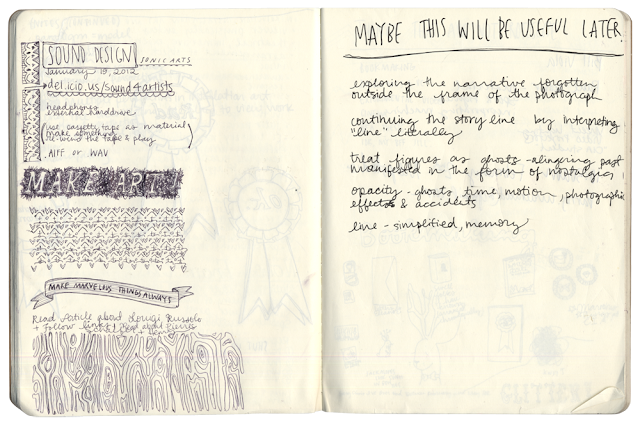 SOUND DESIGN SONIC ARTS
January 19, 2012
del.icio.us/sound4artists
headphones
external harddrive
(use cassette tape as material
make something
re-wind the tape & play)
. AIFF or WAV
MAKE ART!
MAKE MARVELOUS THINGS ALWAYS
Read Article about
+ Follow links!
MAYBE THIS WILL BE USEFUL LATER.
exploring the narrative forgotten
outside the frame of the photograph
continuing the story line by interpreting
"line" literally
treat figures as ghosts - clinging past
manifested in the form of nostalgia
opacity - ghosts, time, motion, photographic
effects & accidents
line - simplified, memory